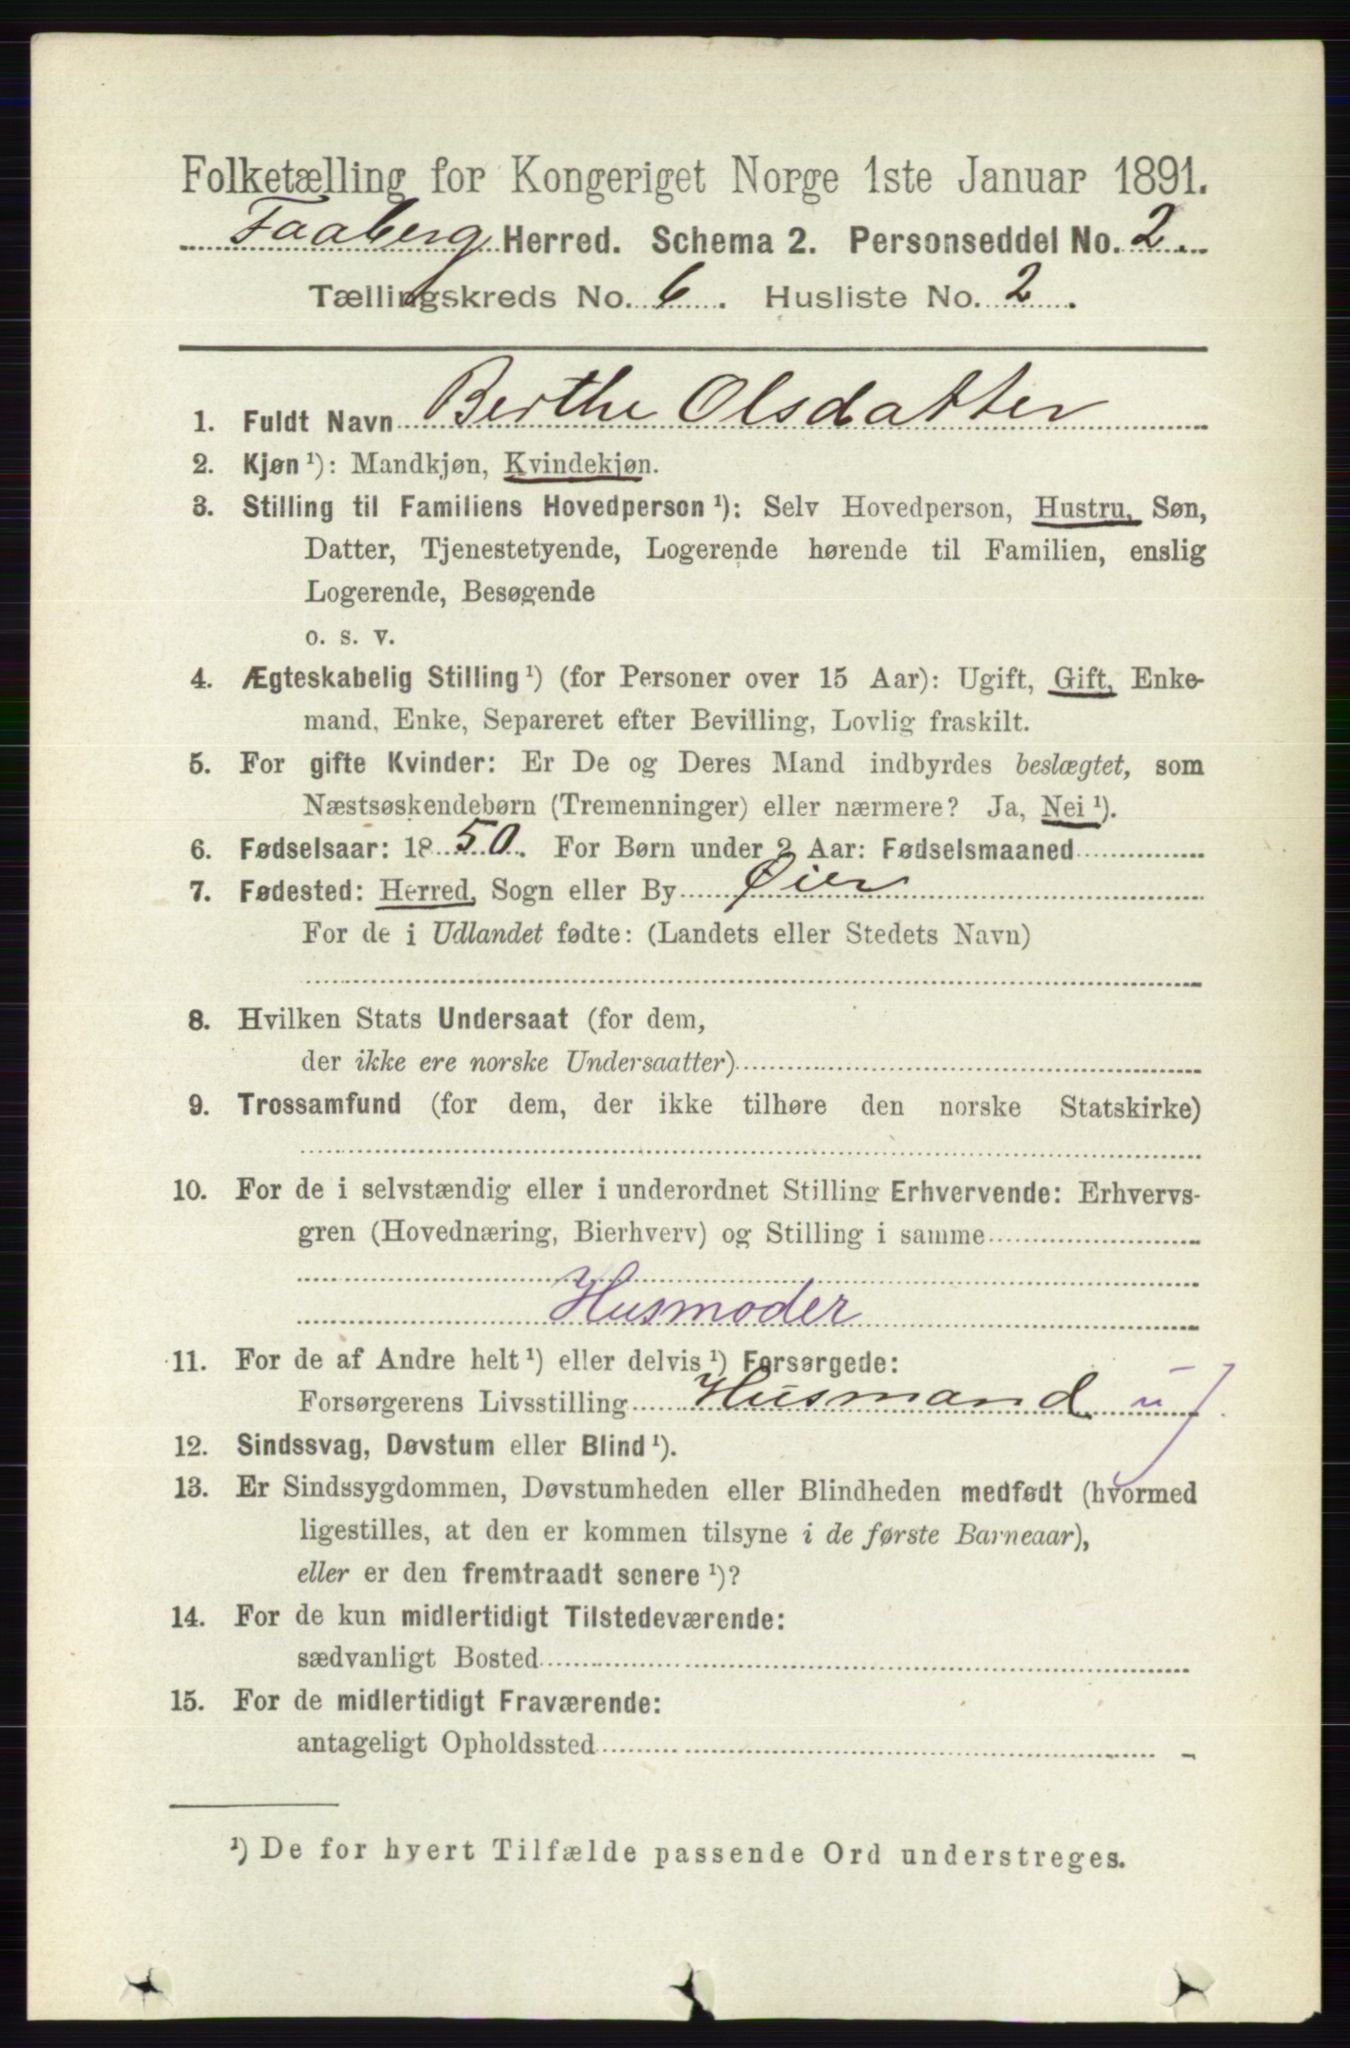 Folketælling for Kongeriget Norge 1ste Januar 1891.
Faaberg Herred. Schema 2. Personseddel No. 2.
Tællingskreds No. 6. Husliste No. 2.
1. Fuldt Navn Berthe Olsdatter
2. Kjøn ¹): Mandkjøn, Kvindekjøn.
3. Stilling til Familiens Hovedperson ¹): Selv Hovedperson, Hustru, Søn,
Datter, Tjenestetyende, Logerende hørende til Familien, enslig
Logerende, Besøgende
o. s. v.
4. Ægteskabelig Stilling ¹) (for Personer over 15 Aar): Ugift, Gift, Enke-
mand, Enke, Separeret efter Bevilling, Lovlig fraskilt.
5. For gifte Kvinder: Er De og Deres Mand indbyrdes beslægtet, som
Næstsøskendebørn (Tremenninger) eller nærmere? Ja, Nei ¹).
6. Fødselsaar: 1850. For Børn under 2 Aar: Fødselsmaaned
7. Fødested: Herred, Sogn eller By Øier
For de i Udlandet fødte: (Landets eller Stedets Navn)
8. Hvilken Stats Undersaat (for dem,
der ikke ere norske Undersaatter)
9. Trossamfund (for dem, der ikke tilhøre den norske Statskirke)
10. For de i selvstændig eller i underordnet Stilling Erhvervende: Erhvervs-
gren (Hovednæring, Bierhverv) og Stilling i samme
Husmoder
11. For de af Andre helt ¹) eller delvis ¹) Forsørgede:
Forsørgerens Livsstilling Husmand u J.
12. Sindssvag, Døvstum eller Blind ¹).
13. Er Sindssygdommen, Døvstumheden eller Blindheden medfødt (hvormed
ligestilles, at den er kommen tilsyne i de første Barneaar),
eller er den fremtraadt senere ¹)?
14. For de kun midlertidigt Tilstedeværende:
sædvanligt Bosted
15. For de midlertidigt Fraværende:
antageligt Opholdssted
¹) De for hvert Tilfælde passende Ord understreges.